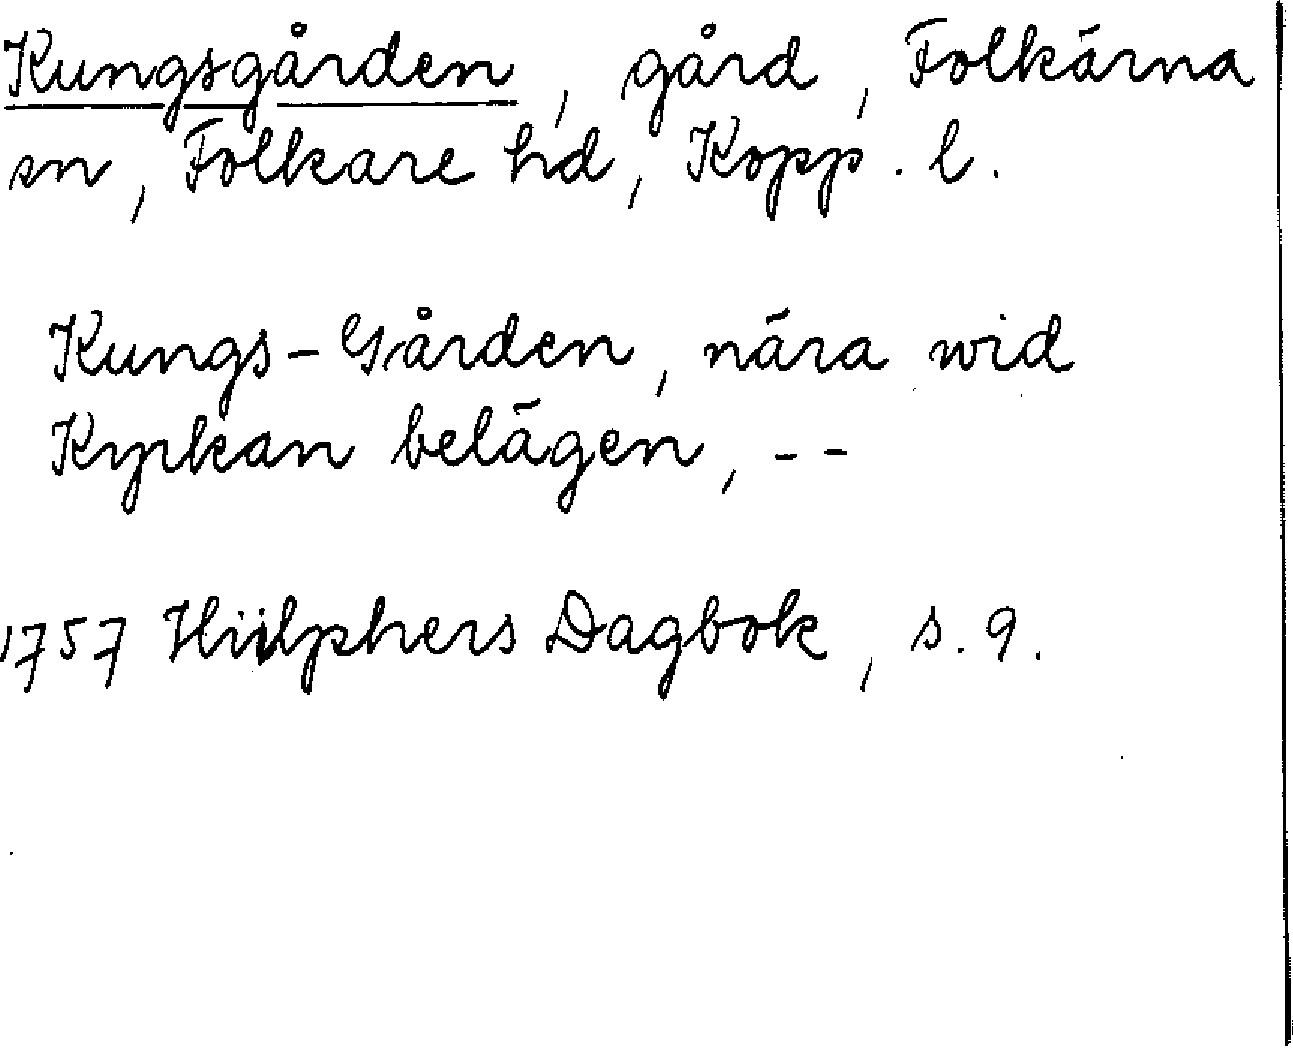 Kungsgården, gård, Folkärna
sn, Folkare hd, Kopp. l.
Kungs-Gården, nära wid
Kyrkan belägen, --
1757 Hülphers Dagbok, s. 9.